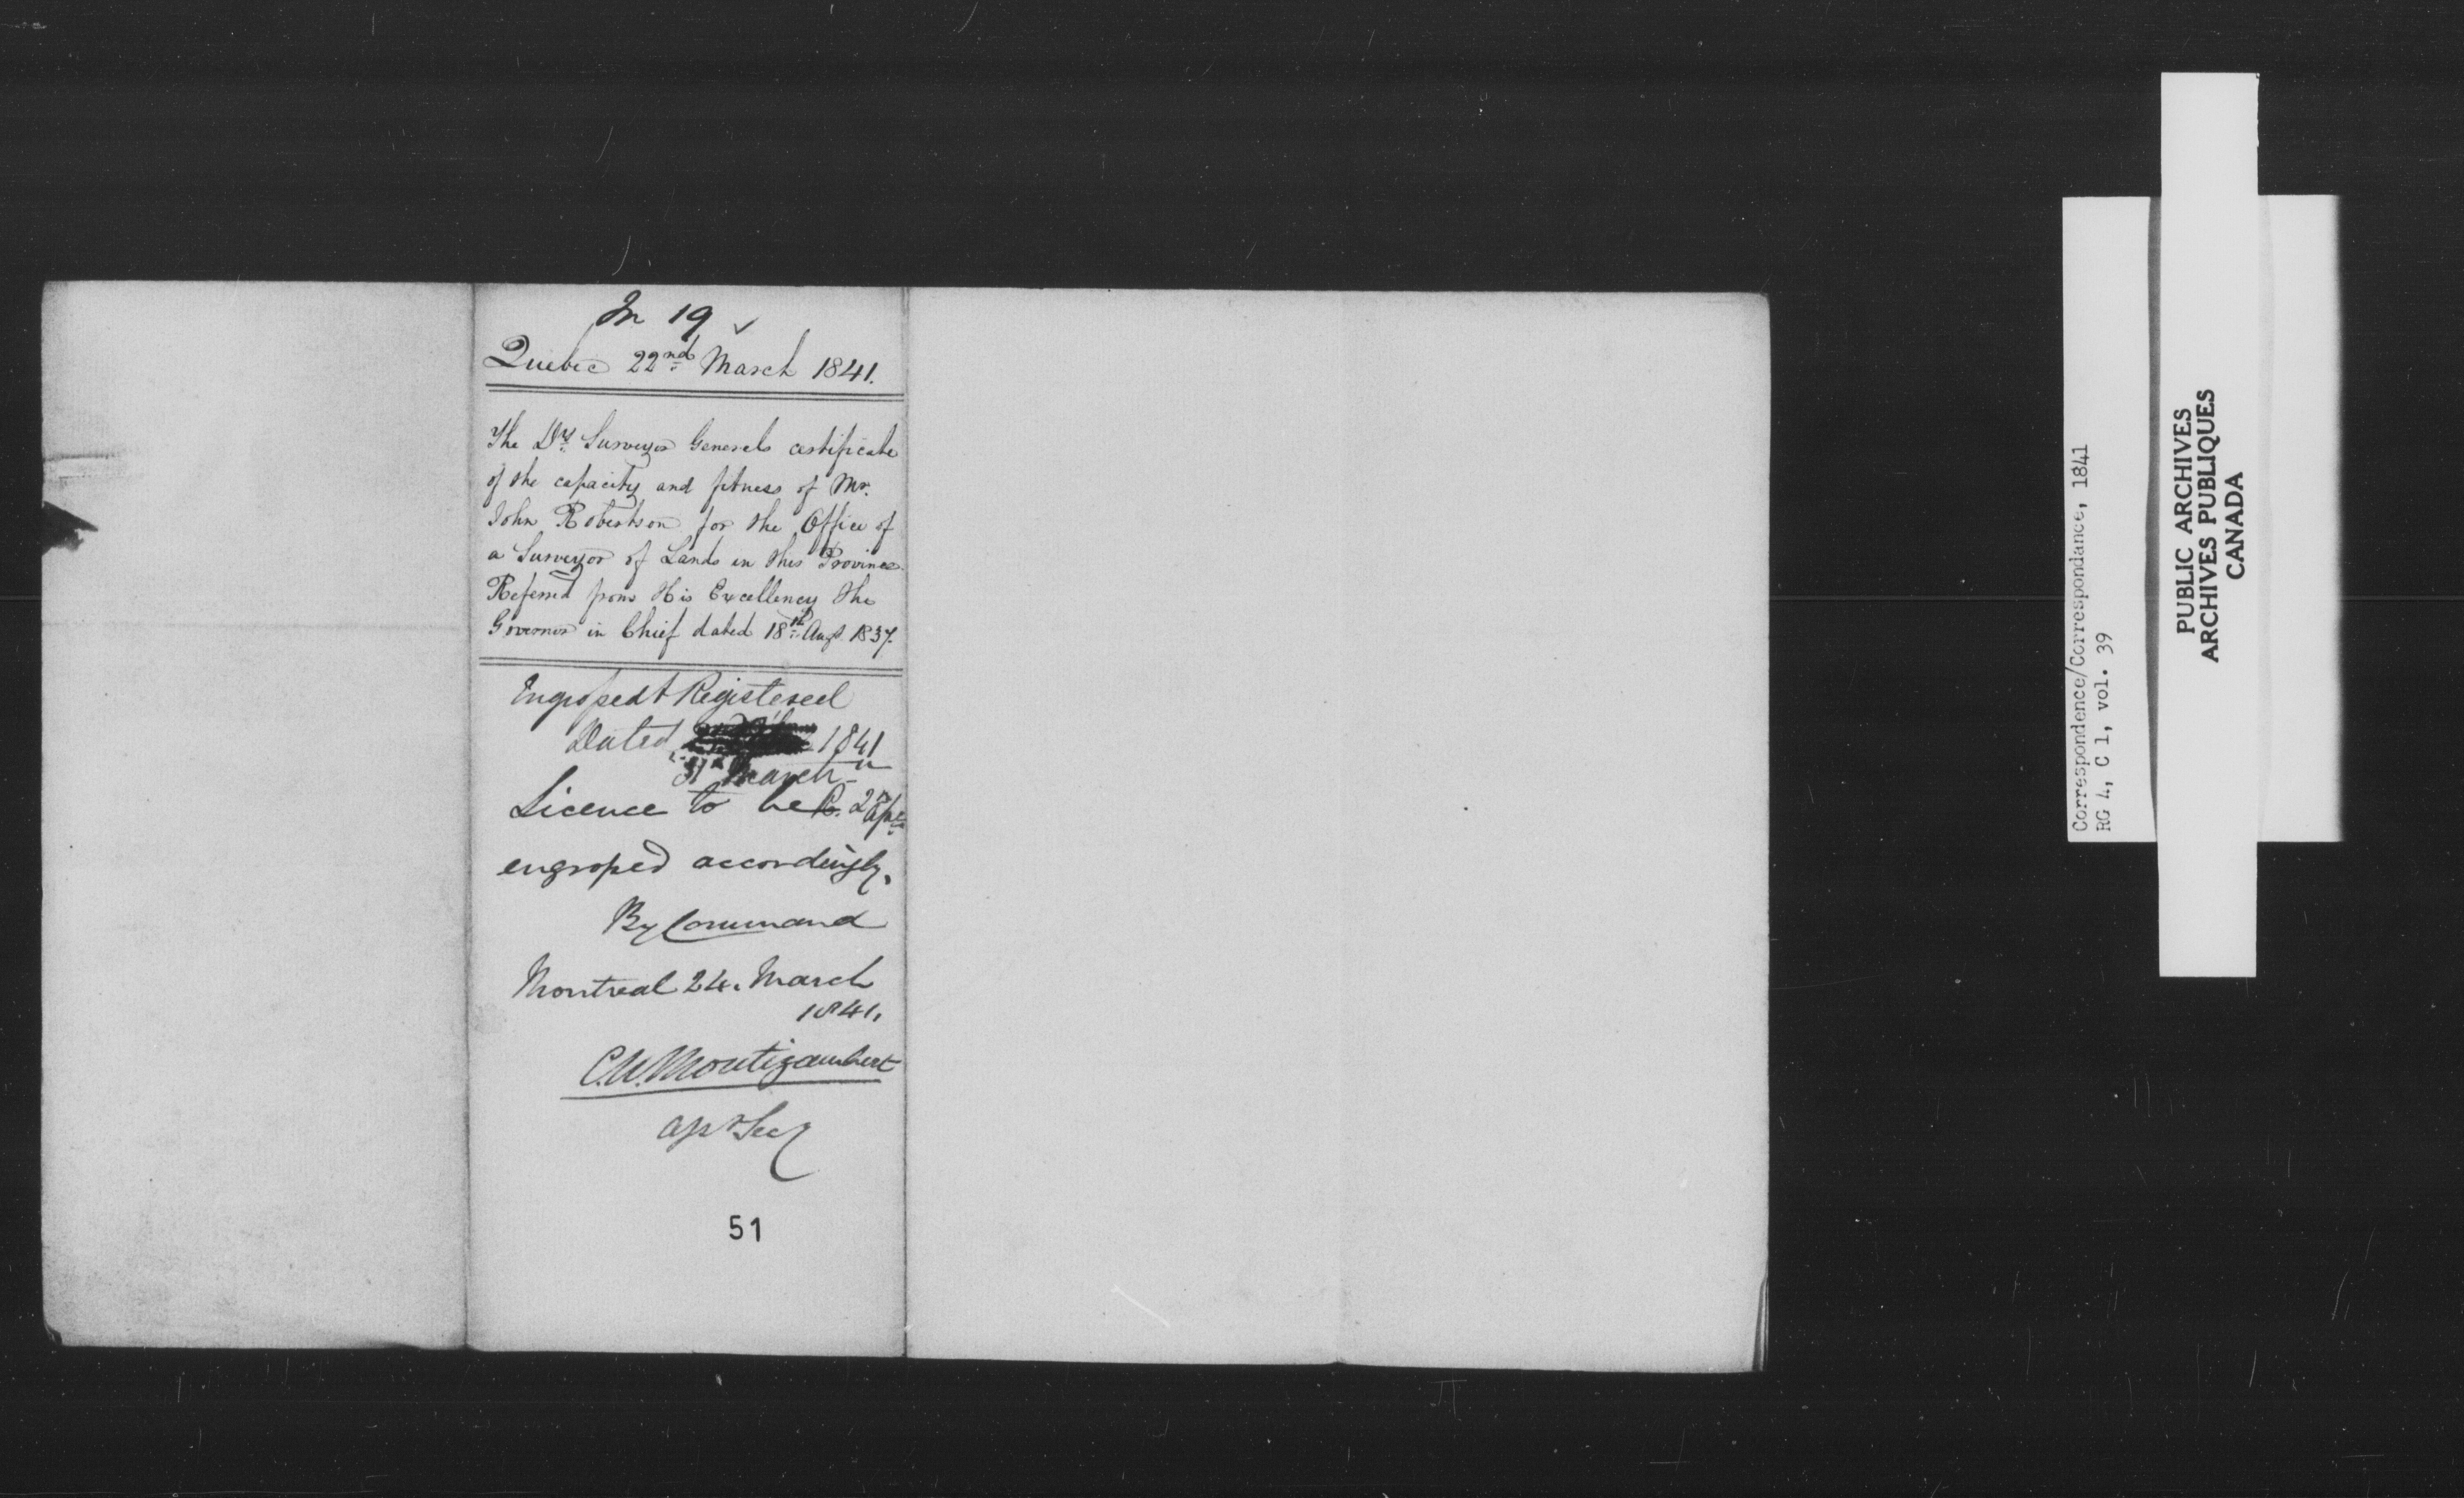 In 19
Quebec 22nd March 1841.
The Dy. Surveyor Generals certificate
of the capacity and fitness of Mr.
John Robertson for the Office of
a Surveyor of Lands in this Province.
Referred from His Excellency the
Governor in Chief dated 18th Augt. 1837.
Engrossed & Registered
Dated 1841
31st March
Licence to be 2d Apl.
engrossed accordingly.
By Command
Montreal 24. March
1841.
C.W. Montizambert
Asst Secy
51
Correspondence/Correspondance, 1841
RG 4, C 1, vol. 39
PUBLIC ARCHIVES
ARCHIVES PUBLIQUES
CANADA